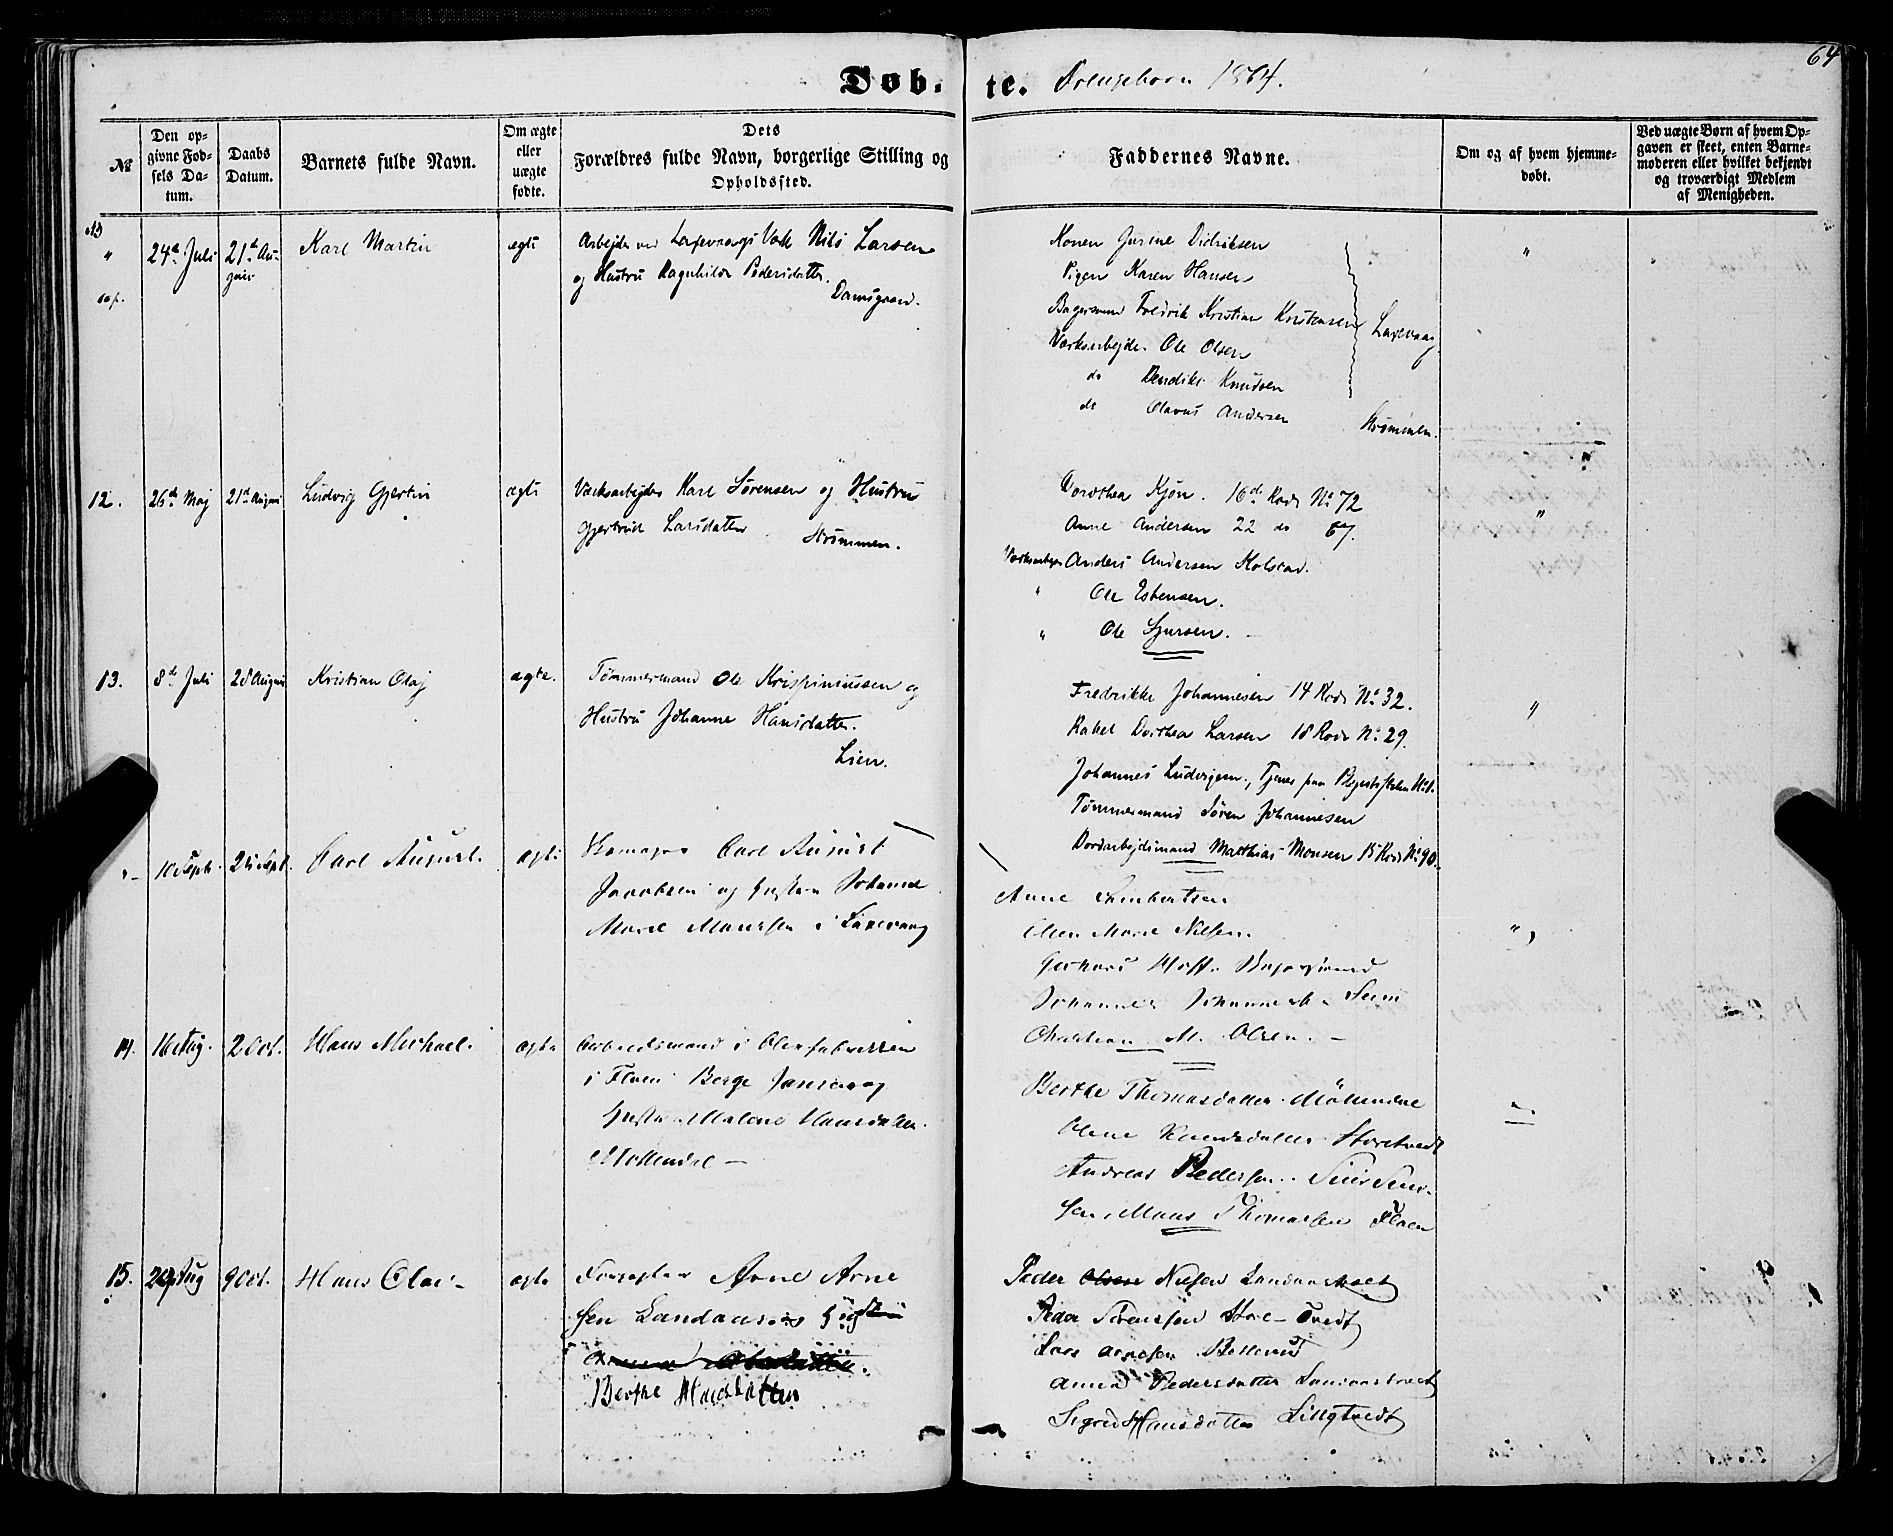 64
Døb- te. Drengebørn 1864.
№
Den opgivne Fødsels Datum.
Daabs Datum.
Barnets fulde Navn.
Om ægte eller uægte fødte.
Dets Forældres fulde Navn, borgerlige Stilling og Opholdssted.
Faddernes Navne.
Om og af hvem hjemmedøbt.
Ved uægte Børn af hvem Opgaven er skeet, enten Barnemoderen eller hvilket bekjendt og troværdigt Medlem af Menigheden.
" 24de Juli 21de August Karl Martin ægte Arbejder ved Laxevaags Værk Nils Larsen
og Hustru Ragnhilde Pedersdatter.
Damsgaard.
Konen Gurine Didriksen
Pigen Karen Hansen
Bagersvend Fredrik Kristian Kristensen Laxevaag.
Værksarbejder Ole Olsen
do Bendike Knudsen
do Olavus Andersen Strømmen.
"
12. 26de Maj 21de August Ludvig Gjertin ægte Værksarbejder Karl Sørensen og Hustru
Gjertrud Larsdatter Strømmen.
Dorothea Kjøn. 16de Rode No 72
Anne Andersen 22 do 67.
Værksarbejder Anders Andersen Kolstad.
" Ole Estensen.
" Ole Sjursen.
"
13. 8de Juli 28 August Kristian Olaj ægte. Tømmermand Ole Krispiniussen og
Hustru Johanne Hansdatter.
Lien.
Fredrikke Johannesen 14 Rode No 32.
Rakel Dorthea Larsen 18 Rode No 29.
Johannes Ludvigsen, Tjener paa
Tømmermand Søren Johannesen
Matthias Monsen 15 Rode No 90.
"
10 Septr. 25 Sept. Carl August. ægte Skomager Carl August
Jacobsen og Hustru Johanne
Marie Monssen i Laxevaag
Anne Lambertsen
Olea Marie Nilsen.
Gerhard Hoff. Bagersvend
Johannes Johannesen Seim
Christian M. Olsen.
"
14. 16 Aug. 2 Oct. Hans Michael. ægte Arbeidsmand i Oliefabrikken
i Floen Berge Jansen og
Hustru Malene Hansdatter.
Møllendal
Berthe Thomasdatter Møllendal
Oline Knudsdatter Storetvedt
Andreas Pedersen
Mons Thomassen Floen
"
15. 20 Aug 9 Oct. Hans Olai ægte Arne Arne
sen Landaas og Hustru
Berthe Hansdatter
Peder Nilsen Landaastræet
Peder Sørensen Store-Tvedt
Lars Arnesen
Anna Pedersdatter Landaastræet
Sigrid Hansdatter